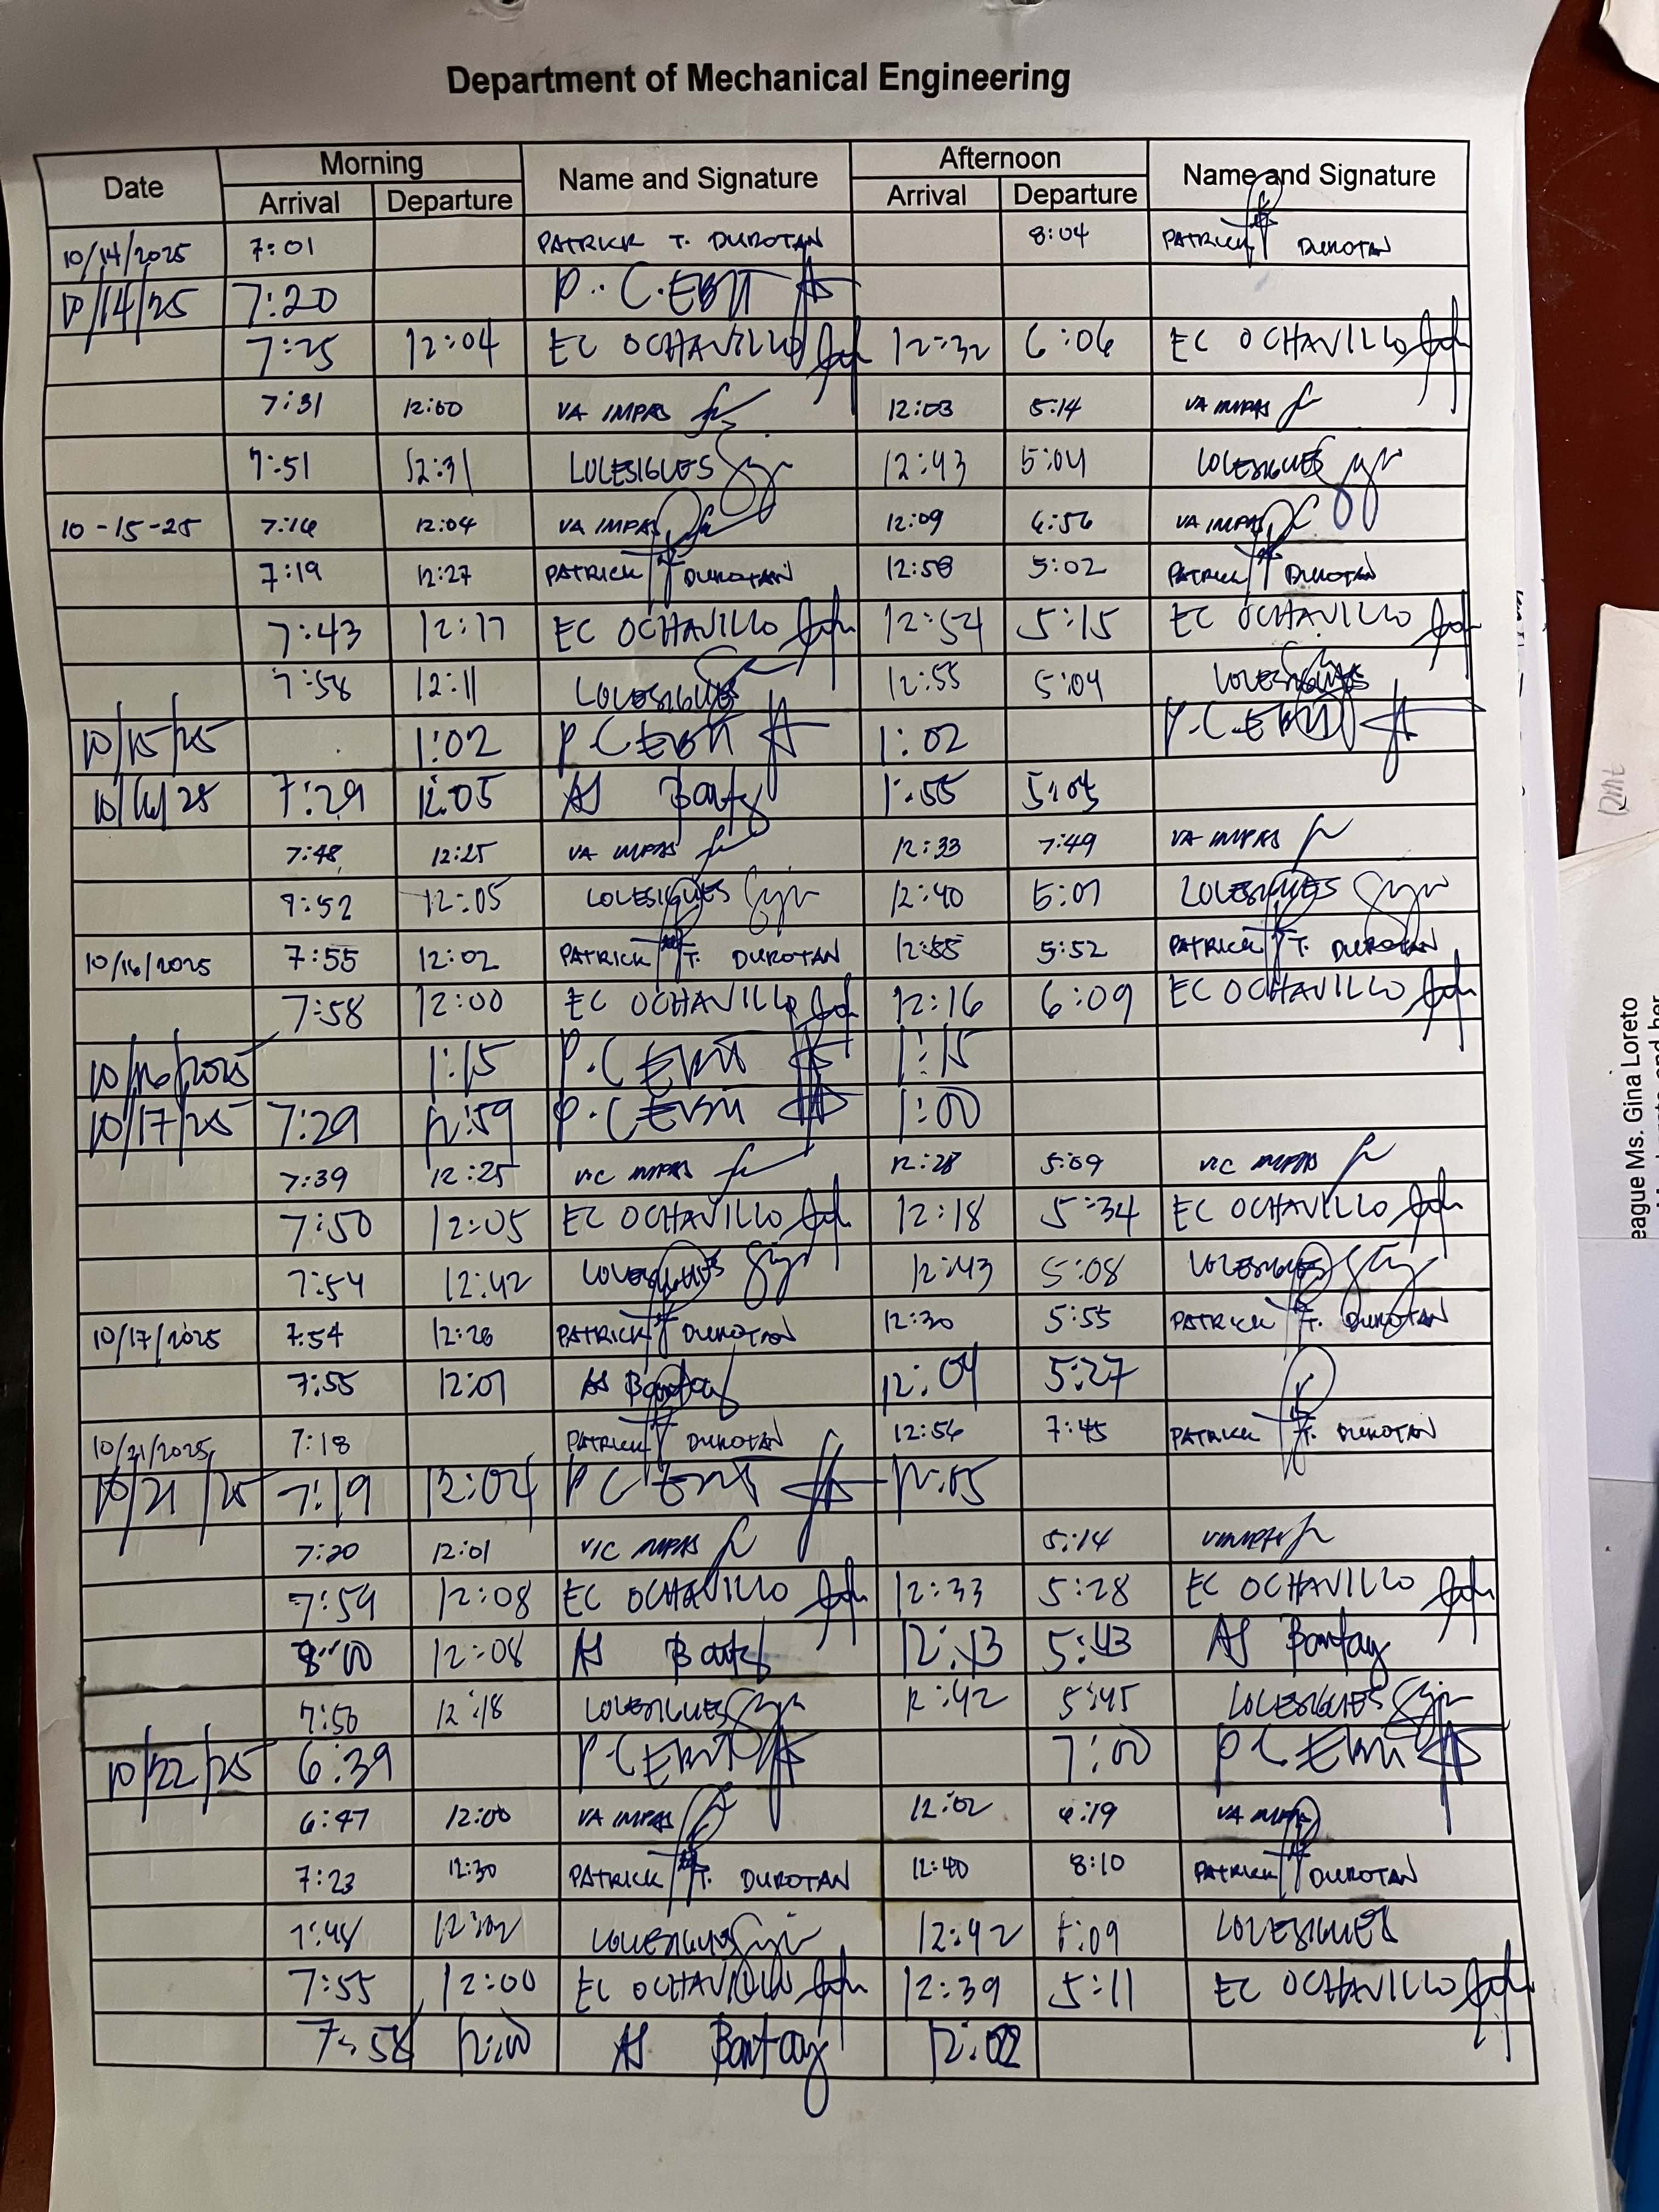 Department of Mechanical Engineering
Date Morning Name and Signature Afternoon Name and Signature
Arrival Departure Arrival Departure
10/14/2025 7:01 PATRICK T. DUROTAN 8:04 PATRICK DUROTAN
10/14/25 7:20 P.C.
7:25 12:04 EC OCHAVILLO 12:32 6:06 EC OCHAVILLO
7:31 12:00 VA IMPAS 12:03 5:14 VA IMPAS
7:51 12:31 LOLESIGUES 12:43 5:04 LOLESIGUES
10-15-25 7:16 12:04 VA IMPAS 12:09 6:56 VA IMPAS
7:19 12:27 PATRICK DUROTAN 12:58 5:02 PATRICK DUROTAN
7:43 12:17 EC OCHAVILLO 12:54 5:15 EC OCHAVILLO
7:58 12:11 LOLESIGUES 12:55 5:04
10/15/25 1:02 P.C. 1:02 P.C.
10/16/25 7:29 12:05 AS Bantay 1:55 5:05
7:48 12:25 VA IMPAS 12:33 7:49 VA IMPAS
7:52 12:05 LOLESIGUES 12:40 5:07 LOLESIGUES
10/16/2025 7:55 12:02 PATRICK T. DUROTAN 12:55 5:52 PATRICK T. DUROTAN
7:58 12:00 EC OCHAVILLO 12:16 6:09 EC OCHAVILLO
10/16/2025 1:15 P.C. 1:15
10/17/25 7:29 12:59 P.C. 1:00
7:39 12:25 VIC IMPAS 12:28 5:09 VIC IMPAS
7:50 12:05 EC OCHAVILLO 12:18 5:34 EC OCHAVILLO
7:54 12:42 LOLESIGUES 12:43 5:08 LOLESIGUES
10/17/2025 7:54 12:26 PATRICK DUROTAN 12:30 5:55 PATRICK T. DUROTAN
7:55 12:01 AS Bantay 12:04 5:27
10/21/2025 7:18 PATRICK DUROTAN 12:56 7:45 PATRICK T. DUROTAN
10/21/25 7:19 12:04 P C 12:05
7:20 12:01 VIC IMPAS 5:14
7:59 12:08 EC OCHAVILLO 12:33 5:28 EC OCHAVILLO
8:00 12:08 AS 12:13 5:43 AS Bantay
7:50 12:18 LOLESIGUES 12:42 5:45 LOLESIGUES
10/22/25 6:39 P.C. 7:00 P C
6:47 12:00 VA IMPAS 12:02 6:19 VA
7:23 12:30 PATRICK T. DUROTAN 12:40 8:10 PATRICK DUROTAN
7:48 12:02 LOLESIGUES 12:42 5:09 LOLESIGUES
7:55 12:00 EC OCHAVILLO 12:39 5:11 EC OCHAVILLO
7:58 12:00 AS Bantay 12:02
eague Ms. Gina Loreto